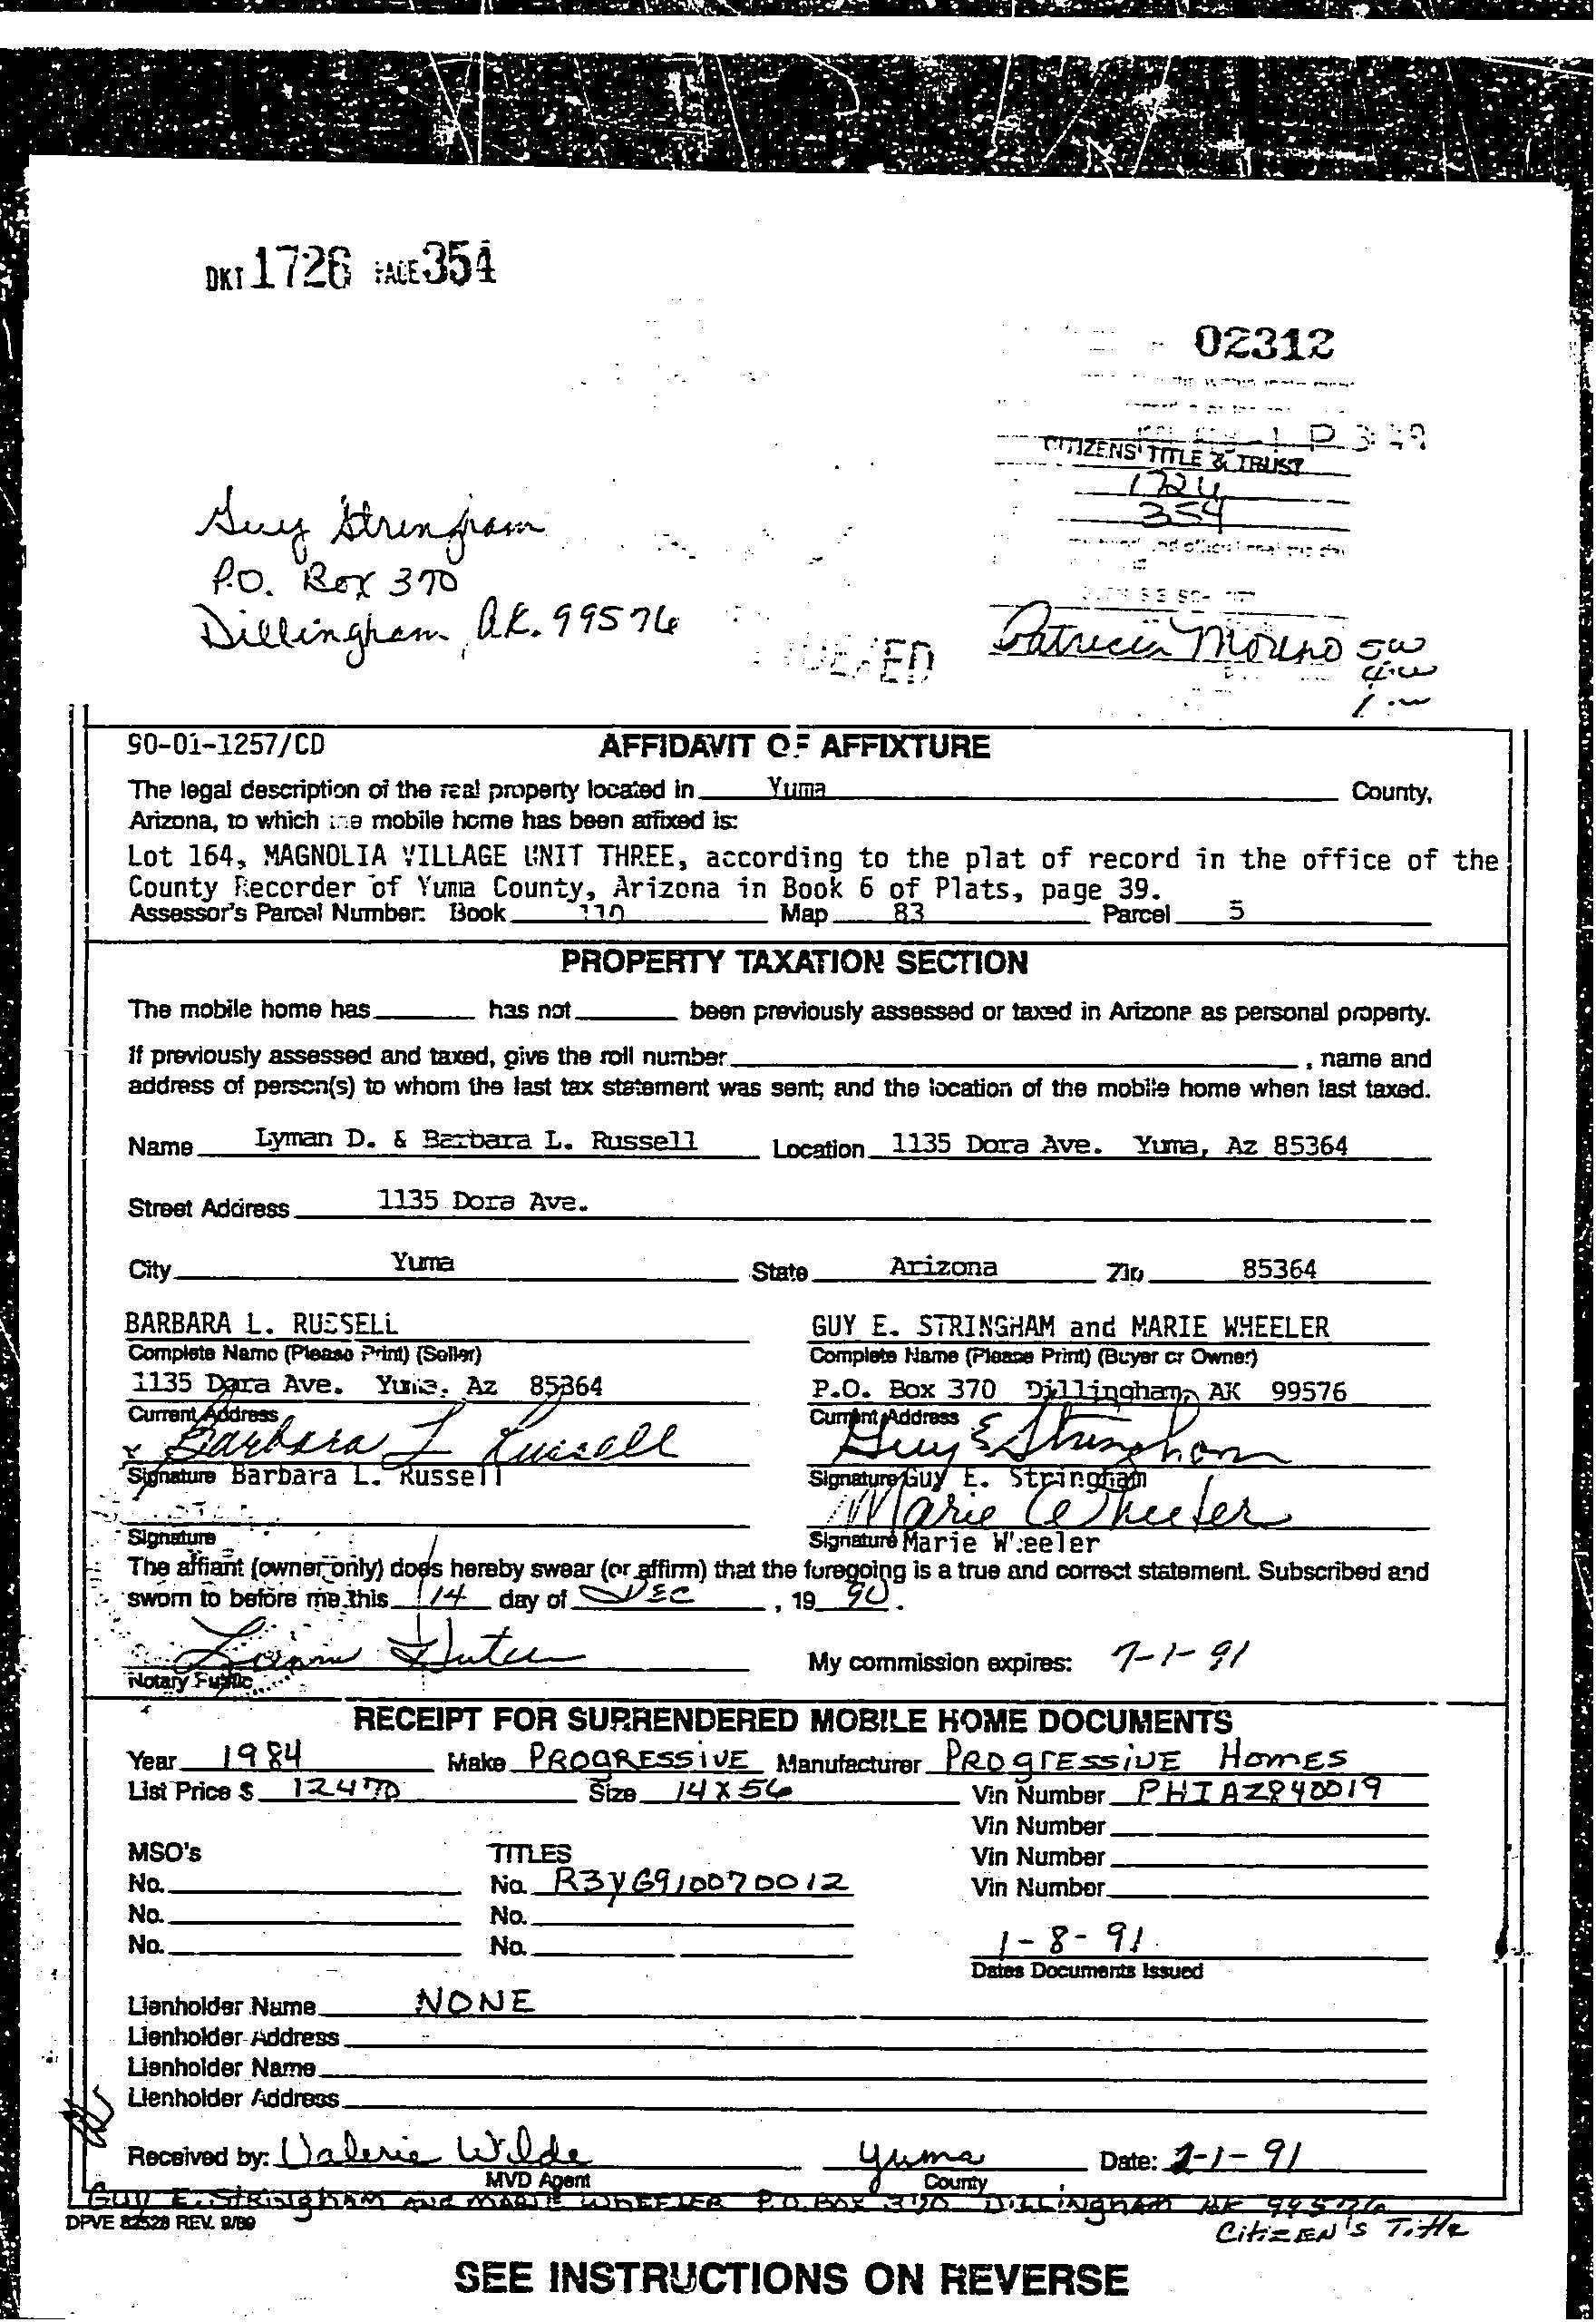 DKT 1726 PAGE 354
02312
CITIZENS' TITLE & TRUST
1726
354
Guy Stringham
P.O. Box 370
Dillingham, AK. 99576
Patricia Moreno
90-01-1257/CD AFFIDAVIT OF AFFIXTURE
The legal description of the real property located in Yuma County,
Arizona, to which the mobile home has been affixed is:
Lot 164, MAGNOLIA VILLAGE UNIT THREE, according to the plat of record in the office of the
County Recorder of Yuma County, Arizona in Book 6 of Plats, page 39.
Assessor's Parcel Number: Book 110 Map 83 Parcel 5
PROPERTY TAXATION SECTION
The mobile home has has not been previously assessed or taxed in Arizona as personal property.
If previously assessed and taxed, give the roll number , name and
address of person(s) to whom the last tax statement was sent; and the location of the mobile home when last taxed.
Name Lyman D. & Barbara L. Russell Location 1135 Dora Ave. Yuma, Az 85364
Street Address 1135 Dora Ave.
City Yuma State Arizona Zip 85364
BARBARA L. RUSSELL GUY E. STRINGHAM and MARIE WHEELER
Complete Name (Please Print) (Seller) Complete Name (Please Print) (Buyer or Owner)
1135 Dora Ave. Yuma, Az 85364 P.O. Box 370 Dillingham, AK 99576
Current Address Current Address
x Barbara L Russell Guy E Stringham
Signature Barbara L. Russell Signature Guy E. Stringham
Marie Wheeler
Signature Signature Marie Wheeler
The affiant (owner only) does hereby swear (or affirm) that the foregoing is a true and correct statement. Subscribed and
sworn to before me this 14 day of DEC , 19 90.
My commission expires: 7-1-91
Notary Public
RECEIPT FOR SURRENDERED MOBILE HOME DOCUMENTS
Year 1984 Make PROGRESSIVE Manufacturer PROGRESSIVE HOMES
List Price $ 12470 Size 14X56 Vin Number PHIAZ840019
Vin Number
MSO's TITLES Vin Number
No. No. R3YG910070012 Vin Number
No. No.
No. No. 1-8-91
Dates Documents Issued
Lienholder Name NONE
Lienholder Address
Lienholder Name
Lienholder Address
Received by: Valerie Wilde Yuma Date: 2-1-91
MVD Agent County
GUY E. STRINGHAM AND MARIE WHEELER P.O. BOX 370 DILLINGHAM AK 99576
DPVE 82528 REV. 9/89 CitizEN'S Title
SEE INSTRUCTIONS ON REVERSE